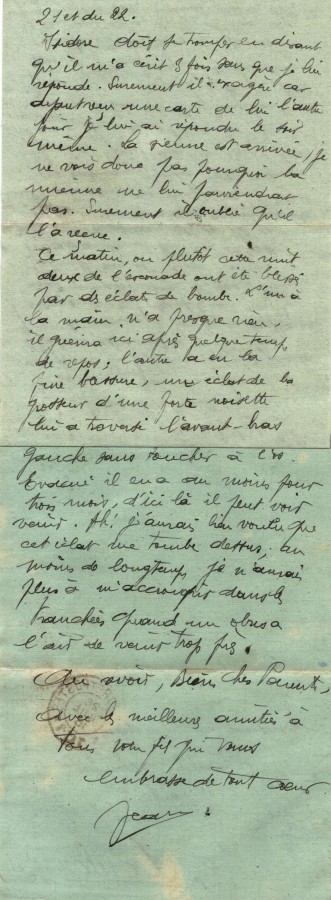 21 et du 22.
Isidore doit se tromper en disant
qu'il m'a écrit 3 fois sans que je lui
réponde. Surement il exagère car
une carte de lui l'autre
jour je lui ai répondu le soir
même. La sienne est arrivée, je
ne vois donc pas pourquoi la
mienne ne lui parviendrait
pas. Surement il oublie qu'il
l'a reçue.
Ce matin, ou plutôt cette nuit
deux de l'escouade ont été blessés
par des éclats de bombe. L'un à
la main n'a presque rien,
il guérira ici après quelque temps
de repos; l'autre a eu la
fine blessure, un éclat de la
grosseur d'une forte noisette
lui a traversé l'avant-bras
gauche sans toucher à l'os.
Evacué il en a au moins pour
trois mois, d'ici là il peut voir
venir. Ah! j'aurais bien voulu que
cet éclat me tombe dessus, au
moins de longtemps je n'aurais
plus à m'accroupir dans les
tranchées quand un obus a
l'air de venir trop près.
Au revoir, Biens Chers Parents,
avec les meilleures amitiés à
tous votre fils qui vous
embrasse de tout coeur
Jean